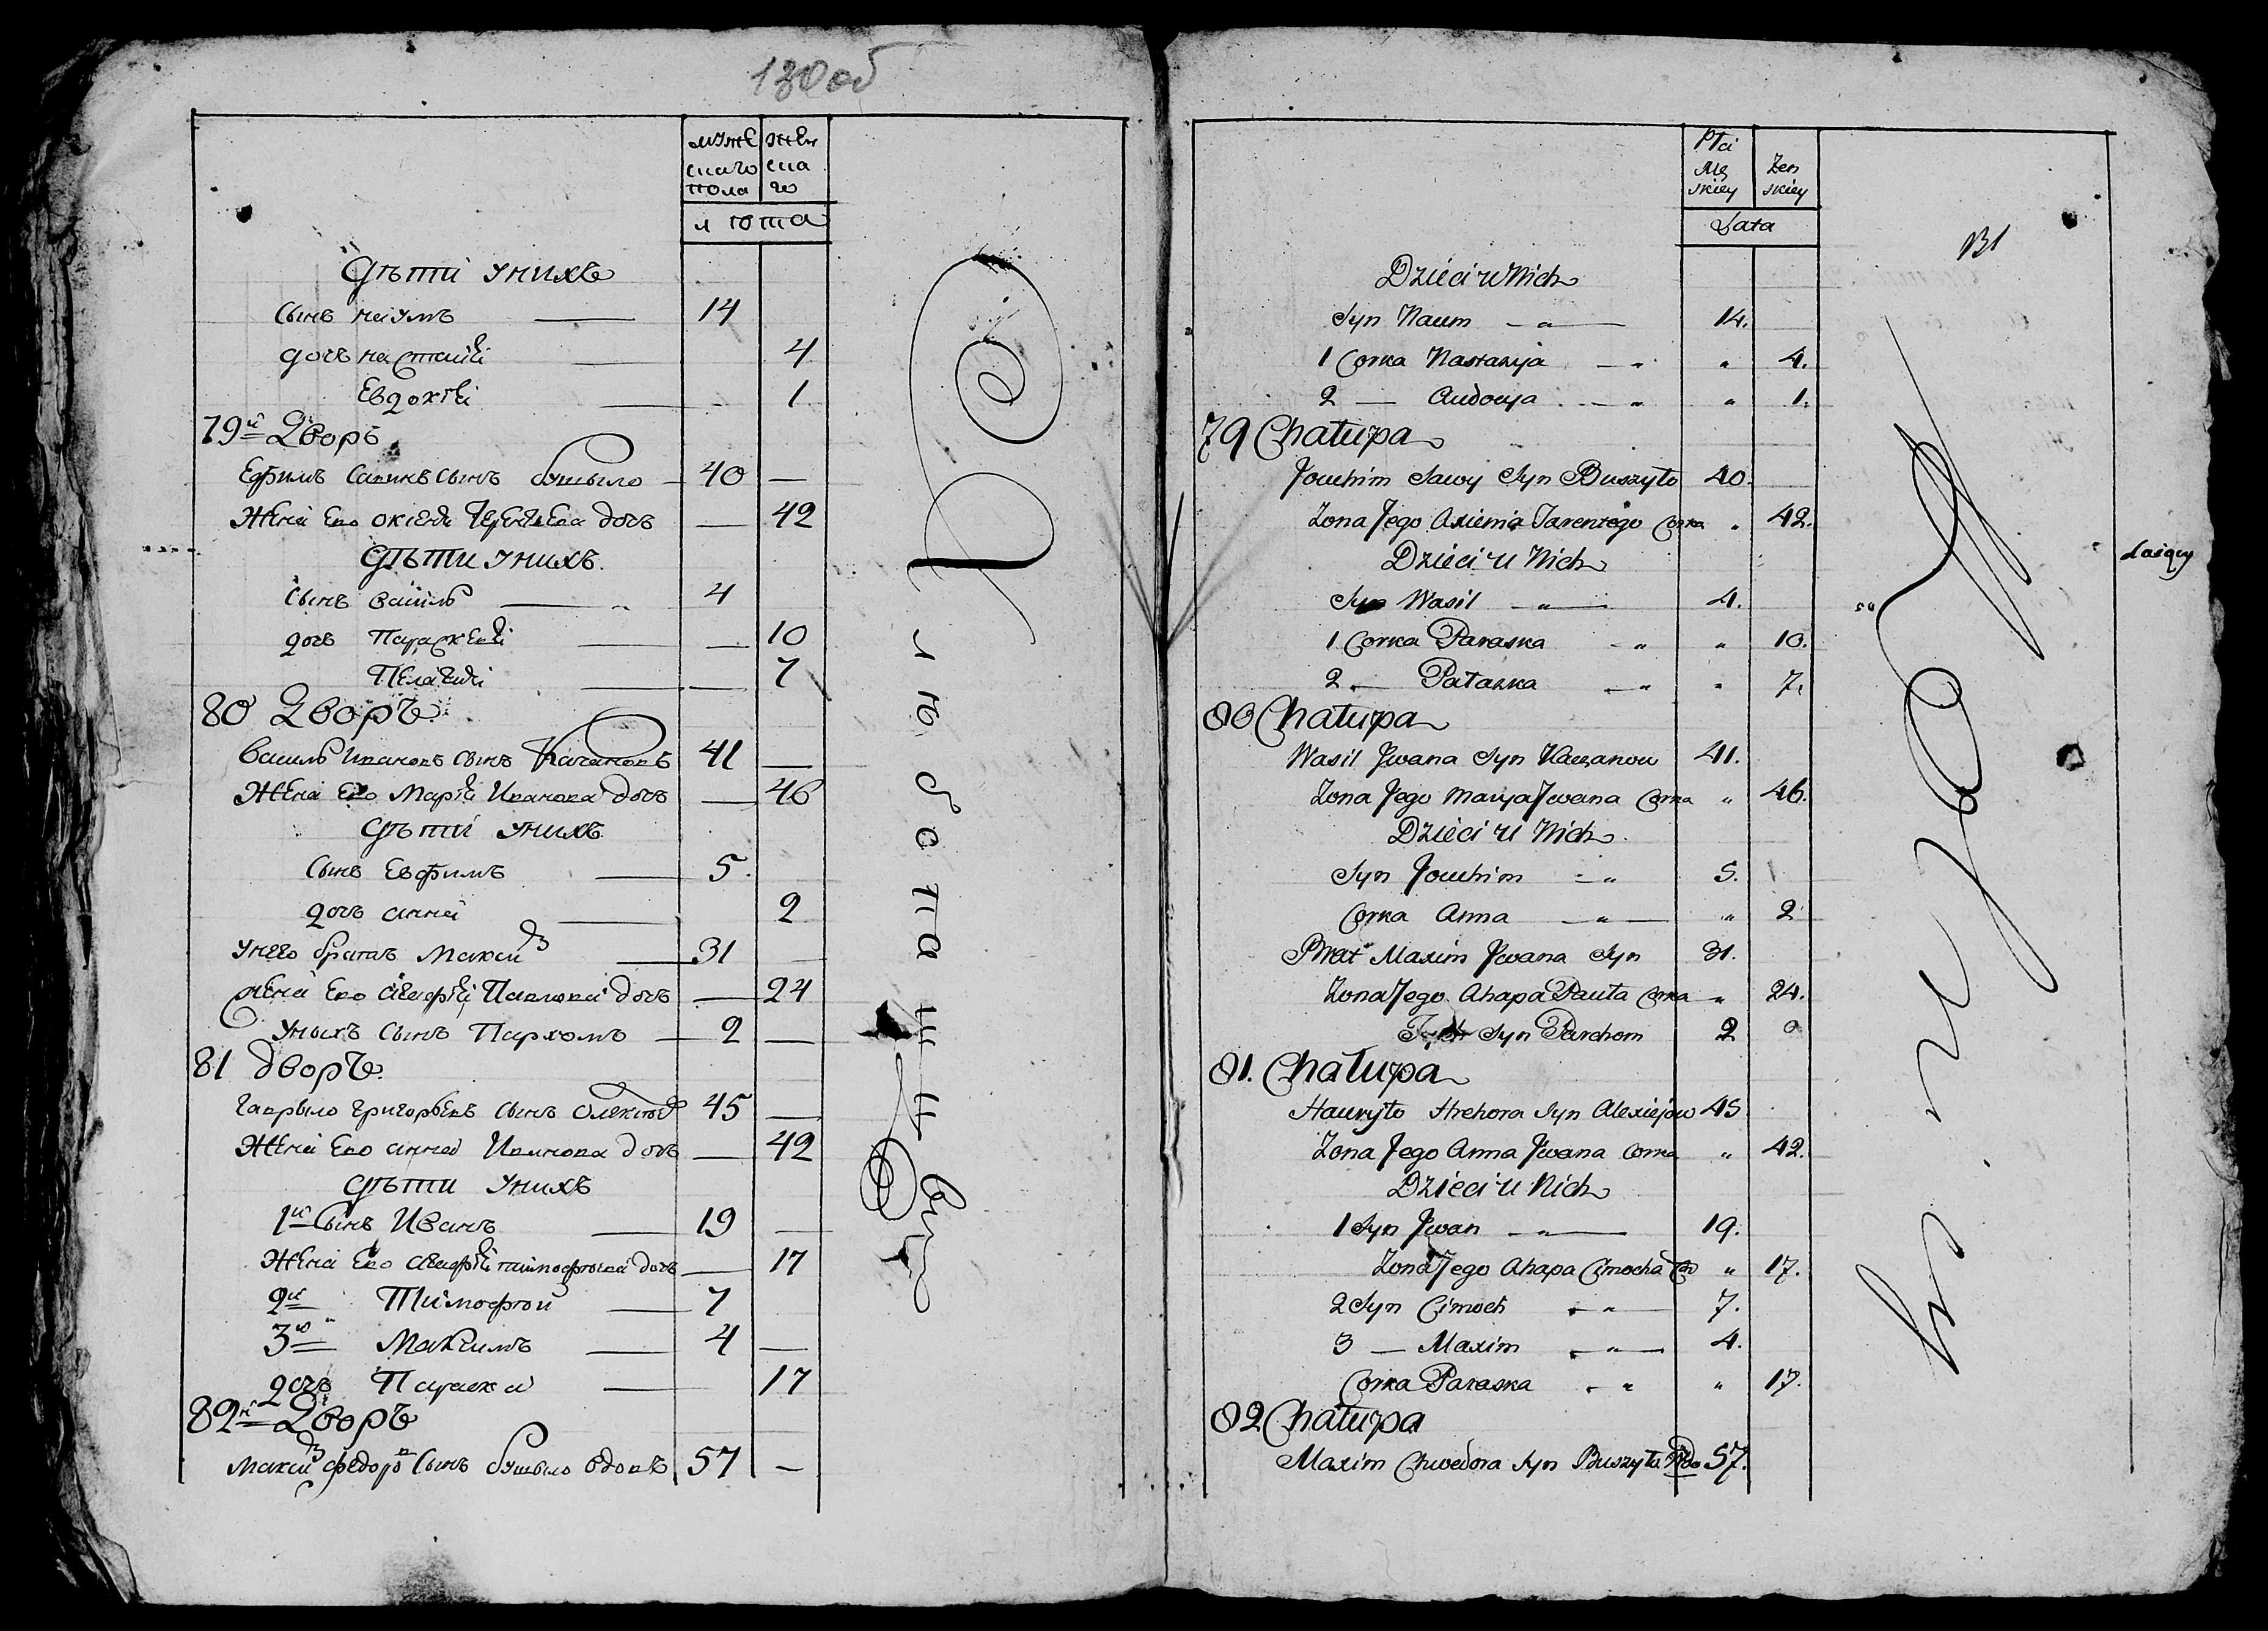 130 об
мужескаго пола женскаго
лѣта
Дѣти у нихъ
Сынъ Наумъ 14
дочь Настасiя 4
Евдокiя 1
79й Дворъ
Ефимъ Савинъ сынъ Бушыло 40 —
Жена Ево Оксенiя Терентьева дочь — 42
Дѣти у нихъ
Сынъ Василь 4
дочь Параскевiя — 10
Пелагидiя — 7
80 Дворъ
Василь Ивановъ сынъ Качановъ 41 —
Жена Ево Марiя Иванова дочь — 46
Дѣти у нихъ
Сынъ Евфимъ 5
дочь Анна 2
У него братъ Максим 31
Жена Ево Агафiя Павлова дочь — 24
У ныхъ Сынъ Пархомъ 2 —
81 дворъ
Гаврыло Григорьевъ сынъ Олексѣев 45 —
Жена Ево Анна Иванова дочь — 42
Дѣти у нихъ
1й Сынъ Иванъ 19 —
Жена Ево Агафiя Тимофѣева дочь — 17
2й Тимофѣй 7
3й Максимъ 4 —
дочь Параска 17
82й Дворъ
Максим Федоров Сынъ Бушыло вдовъ 57 —
Работающихъ
131
Płci Męskiey Żenskiey
Lata
Dzieci u Nich
Syn Naum — " — 14.
1 Corka Nastazyja — " " 4.
2 — Audocyja — " " 1.
79 Chałupa
Jouchim Sawy Syn Buszyło 40.
Zona Jego Axienia Tarentego Corka " 42.
Dzieci u Nich
Syn Wasil — " — 4.
1 Corka Paraska — " " 10.
2 — Pałazka — " " 7.
80 Chałupa
Wasil Jwana Syn Kaczanow 41.
Zona Jego Marya Jwana Corka " 46.
Dzieci u Nich
Syn Jouchim — " 5.
Corka Anna — " — " 2
Brat Maxim Jwana Syn 31.
Zona Jego Ahapa Pauła Corka " 24.
Syn Parchom 2
81. Chałupa
Hauryło Hrehora Syn Alexiejow 45
Zona Jego Anna Jwana Corka " 42.
Dzieci u Nich
1 Syn Jwan — " — 19.
Zona Jego Ahapa Cimocha Cor " 17.
2 Syn Cimoch — " — 7.
3 — Maxim — " — 4.
Corka Paraska — " " 17.
82 Chałupa
Maxim Chwedora Syn Buszyło Wdo 57.